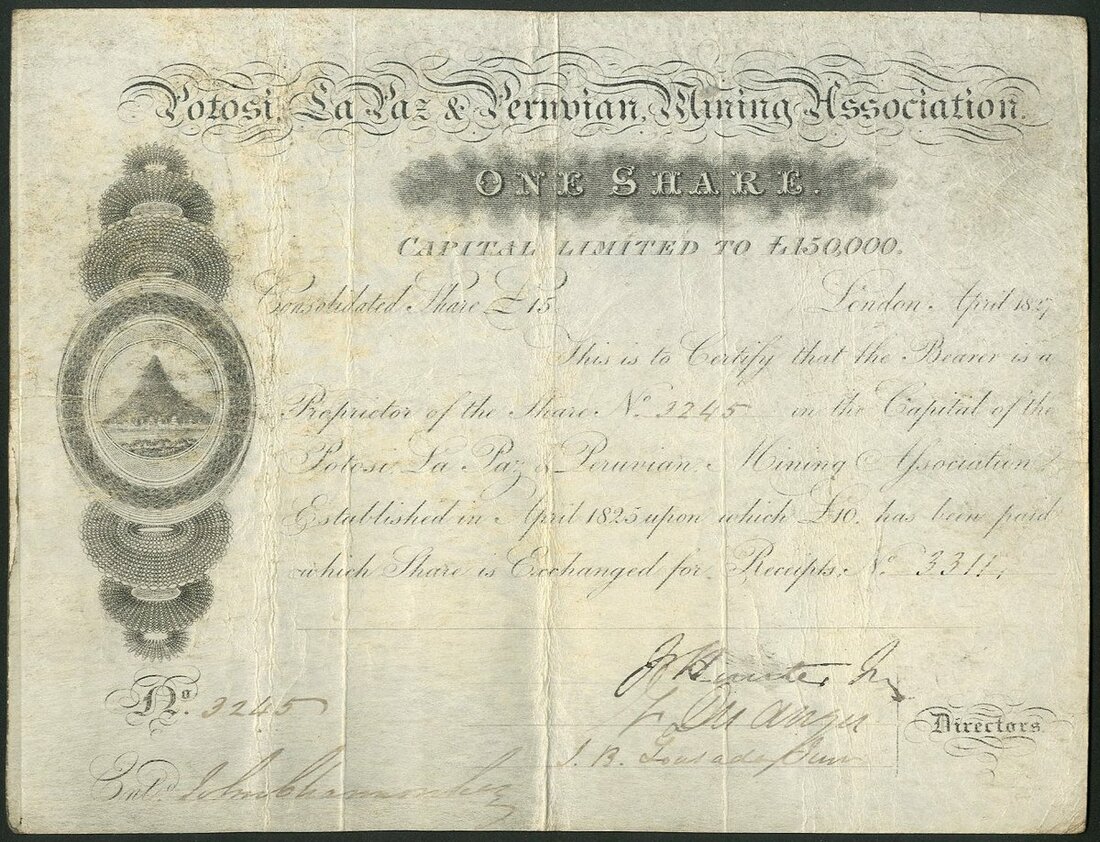 Potosi, La Paz & Peruvian, Mining Association.
ONE SHARE.
CAPITAL LIMITED TO £150,000.
Consolidated Share £15 London, April 1827
This is to Certify that the Bearer is a
Proprietor of the Share No. 3245 in the Capital of the
Potosi, La Paz & Peruvian, Mining Association
Established in April 1825 upon which £10 has been paid
which Share is Exchanged for Receipts, No. 3311,
No. 3245
Directors
Ent.d John